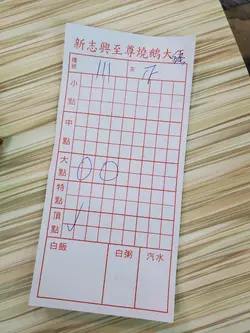 新志興至尊燒鵝大
檯號 111
小點
中點
大點 0 0
特點
頂點 ✓
白飯 白粥 汽水